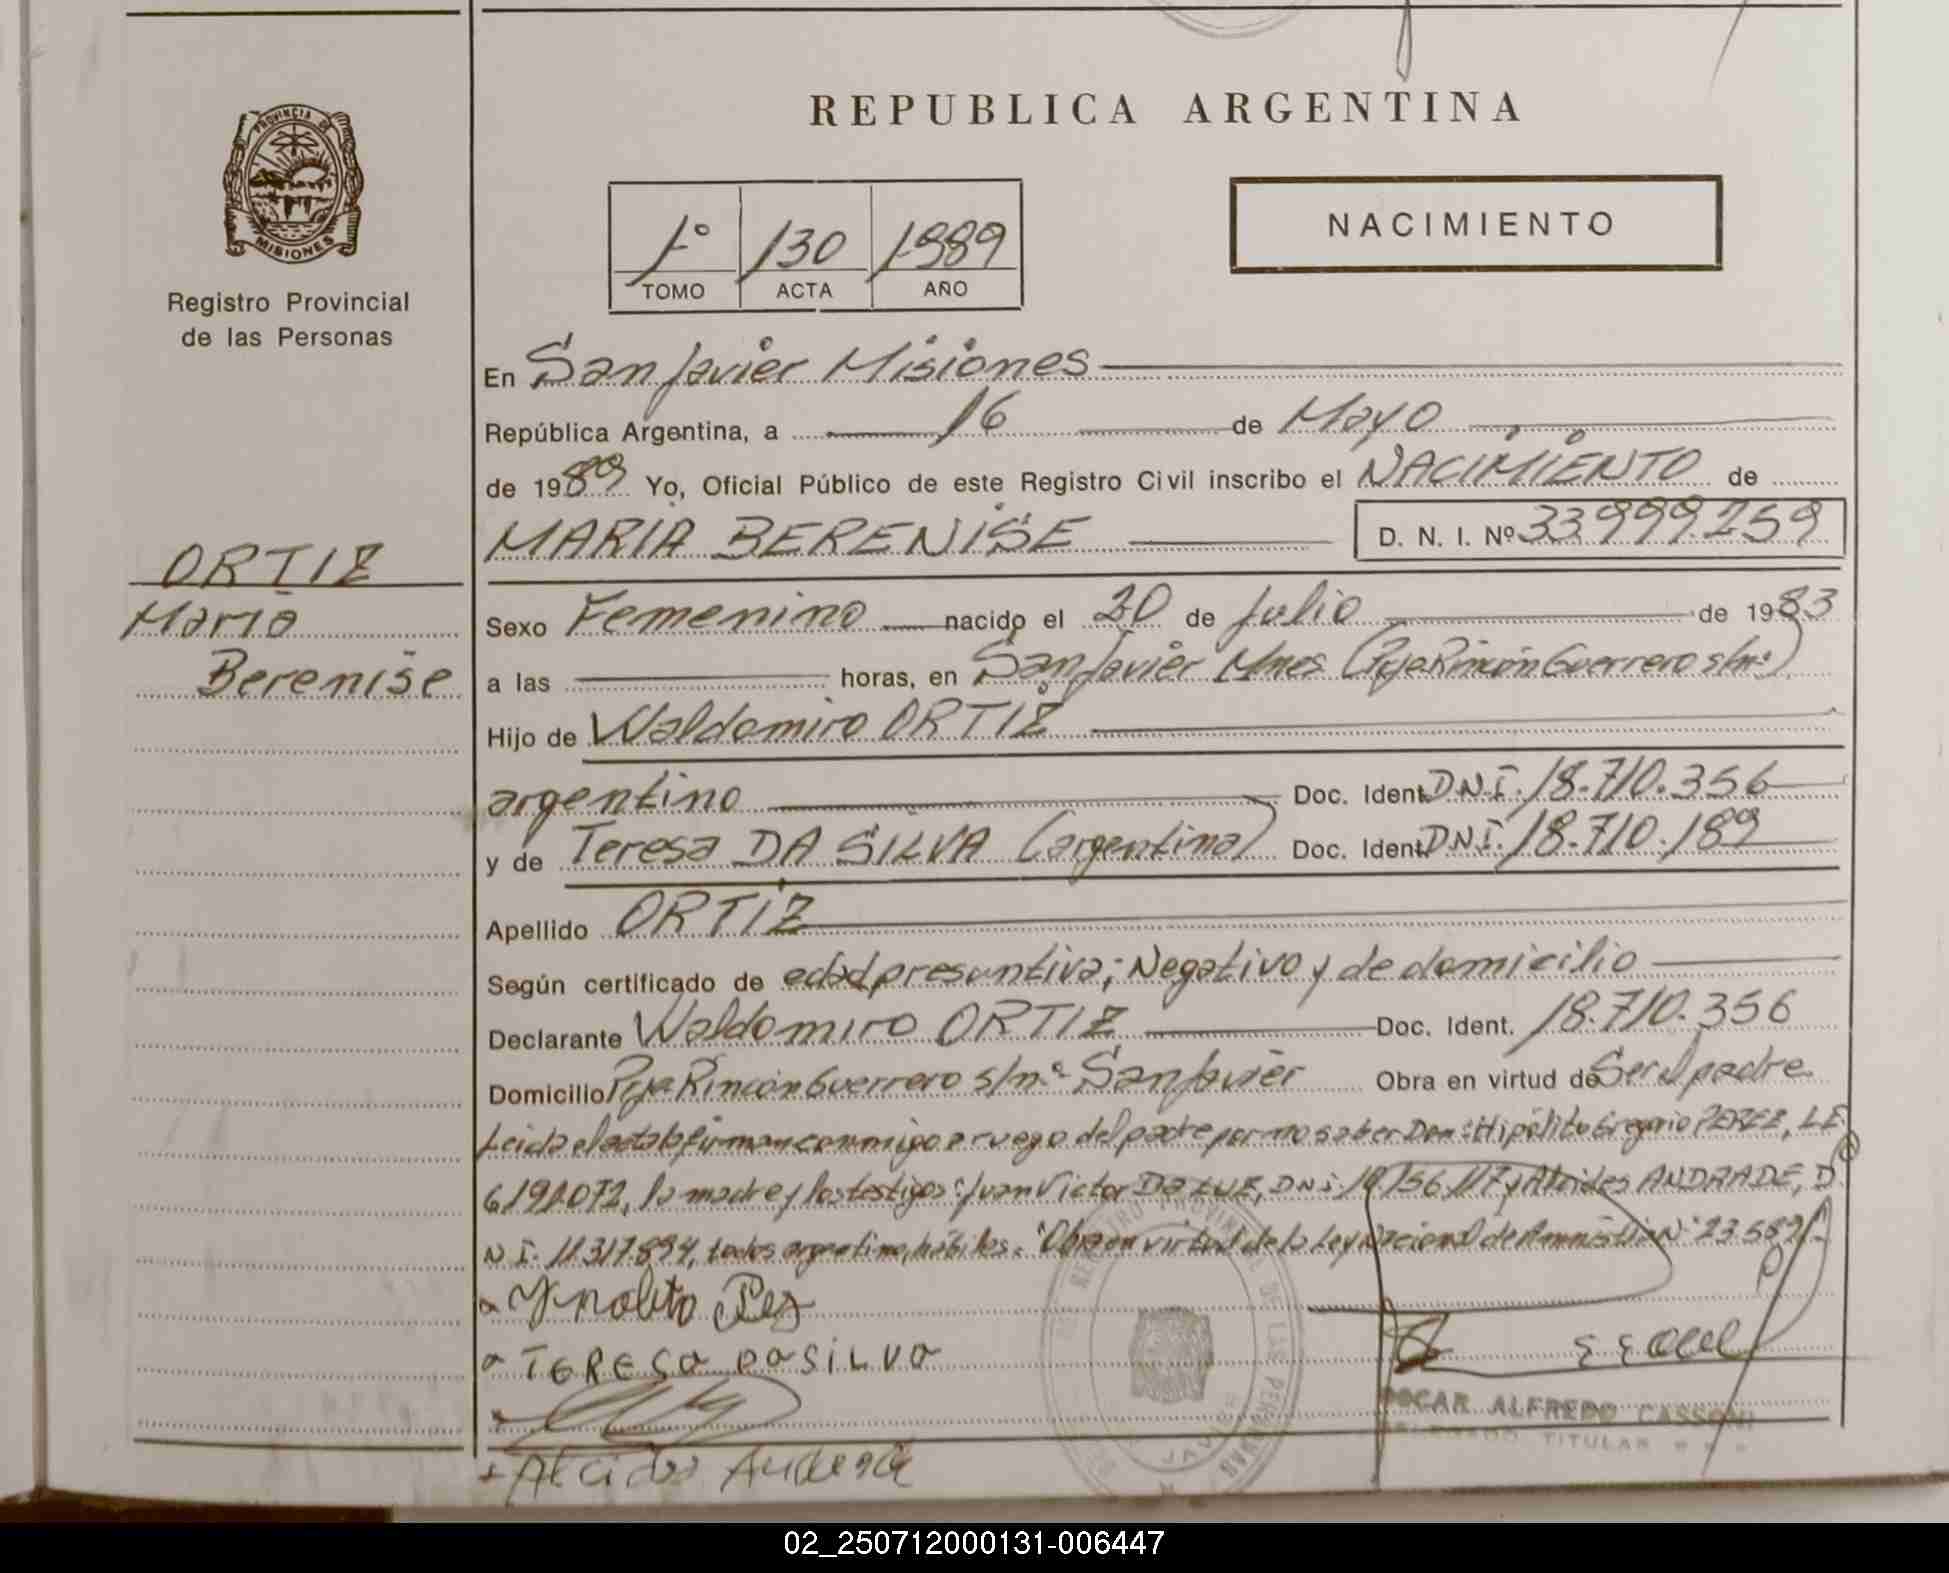 REPUBLICA ARGENTINA
PROVINCIA DE
MISIONES
Registro Provincial
de las Personas
1º 130 1989
TOMO ACTA AÑO
NACIMIENTO
En San Javier Misiones
República Argentina, a 16 de Mayo
de 1989 Yo, Oficial Público de este Registro Civil inscribo el NACIMIENTO de
MARIA BERENISE D. N. I. Nº 33.999.259
ORTIZ
Maria
Berenise
Sexo Femenino nacido el 20 de Julio de 1983
a las horas, en San Javier Mnes (Pje Rincón Guerrero s/nº)
Hijo de Waldomiro ORTIZ
argentino Doc. Ident. D.N.I. 18.710.356
y de Teresa DA SILVA (argentina) Doc. Ident. D.N.I. 18.710.189
Apellido ORTIZ
Según certificado de edad presuntiva; Negativo y de domicilio
Declarante Waldomiro ORTIZ Doc. Ident. 18.710.356
Domicilio Pje Rincón Guerrero s/nº San Javier Obra en virtud de Ser el padre
Leida el acta la firman conmigo a ruego del padre por no saber Don: Hipólito Gregorio PEREZ, L.E
6.191.072, la madre y los testigos: Juan Victor Da LUZ, DNI: y Alcides ANDRADE, D.
N I. 11.317.894, todos argentino, hábiles. "Obra en virtud de la Ley Nacional de Amnistia Nº 23.582
TERESA DASILVA
OSCAR ALFREDO CASSONI
DELEGADO TITULAR
REGISTRO PROVINCIAL DE LAS PERSONAS
JAVIER
02_250712000131-006447